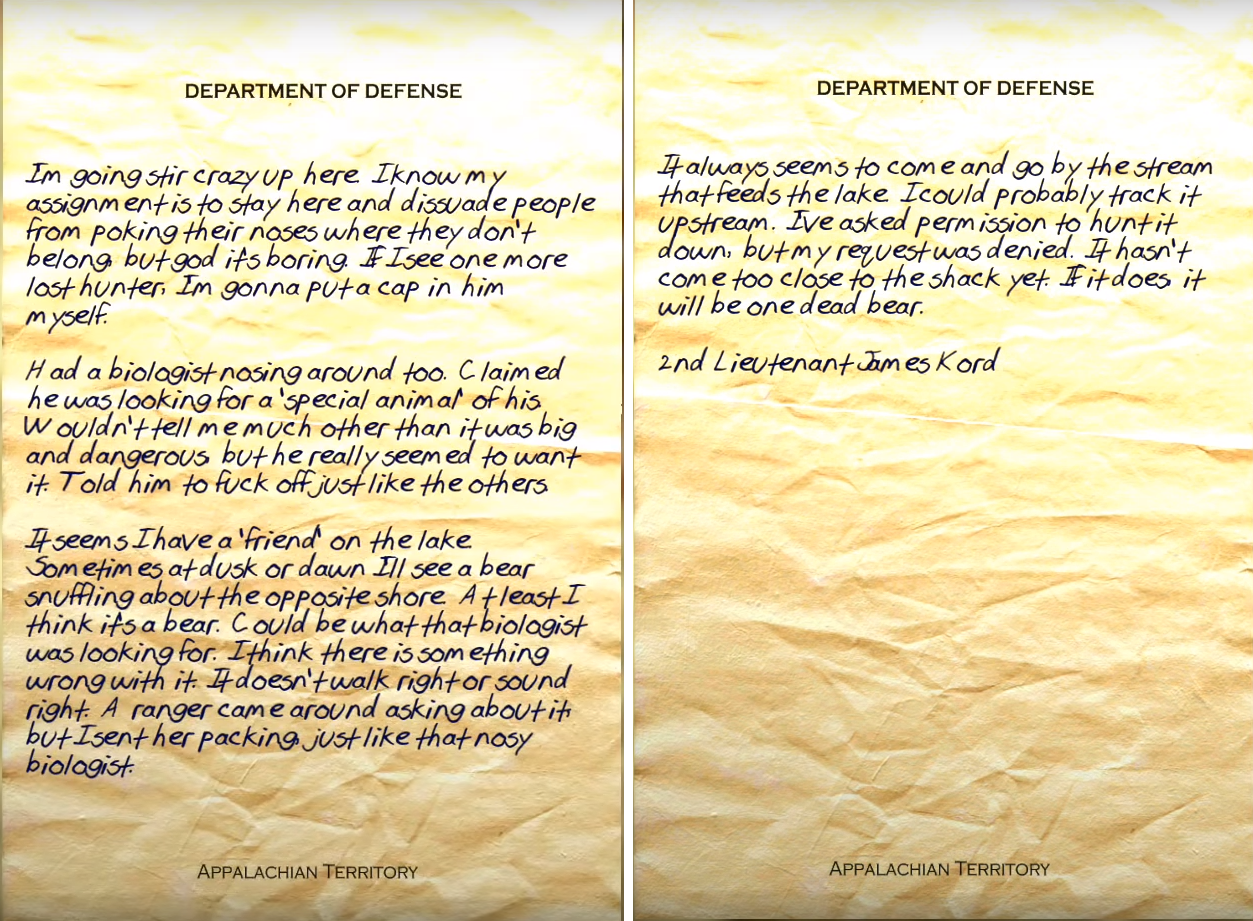 DEPARTMENT OF DEFENSE
Im going stir crazy up here. I know my
assignment is to stay here and dissuade people
from poking their noses where they don't
belong, but god it's boring. If I see one more
lost hunter, Im gonna put a cap in him
myself.
Had a biologist nosing around too. Claimed
he was looking for a 'special animal' of his.
Wouldn't tell me much other than it was big
and dangerous, but he really seemed to want
it. Told him to fuck off just like the others.
It seems I have a 'friend' on the lake.
Sometimes at dusk or dawn I'll see a bear
snuffling about the opposite shore. At least I
think it's a bear. Could be what that biologist
was looking for. I think there is something
wrong with it. It doesn't walk right or sound
right. A ranger came around asking about it,
but I sent her packing, just like that nosy
biologist.
APPALACHIAN TERRITORY
DEPARTMENT OF DEFENSE
It always seems to come and go by the stream
that feeds the lake. I could probably track it
upstream. I've asked permission to hunt it
down, but my request was denied. It hasn't
come too close to the shack yet. If it does, it
will be one dead bear.
2nd Lieutenant James Kord
APPALACHIAN TERRITORY